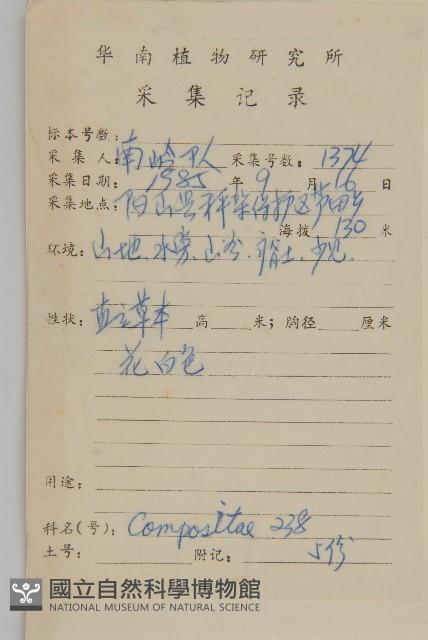 华南植物研究所
采集记录
标本号数:
采集人: 南岭队 采集号数: 1374
采集日期: 1985 年 9 月 16 日
采集地点: 阳山县秤架保护区芦田乡
海拔 130 米
环境: 山地.水旁.山谷.瘠土.少见.
性状: 直立草本 高 米; 胸径 厘米
花白色
用途:
科名(号): Compositae 238
土号: 附记: 5份
國立自然科學博物館
NATIONAL MUSEUM OF NATURAL SCIENCE